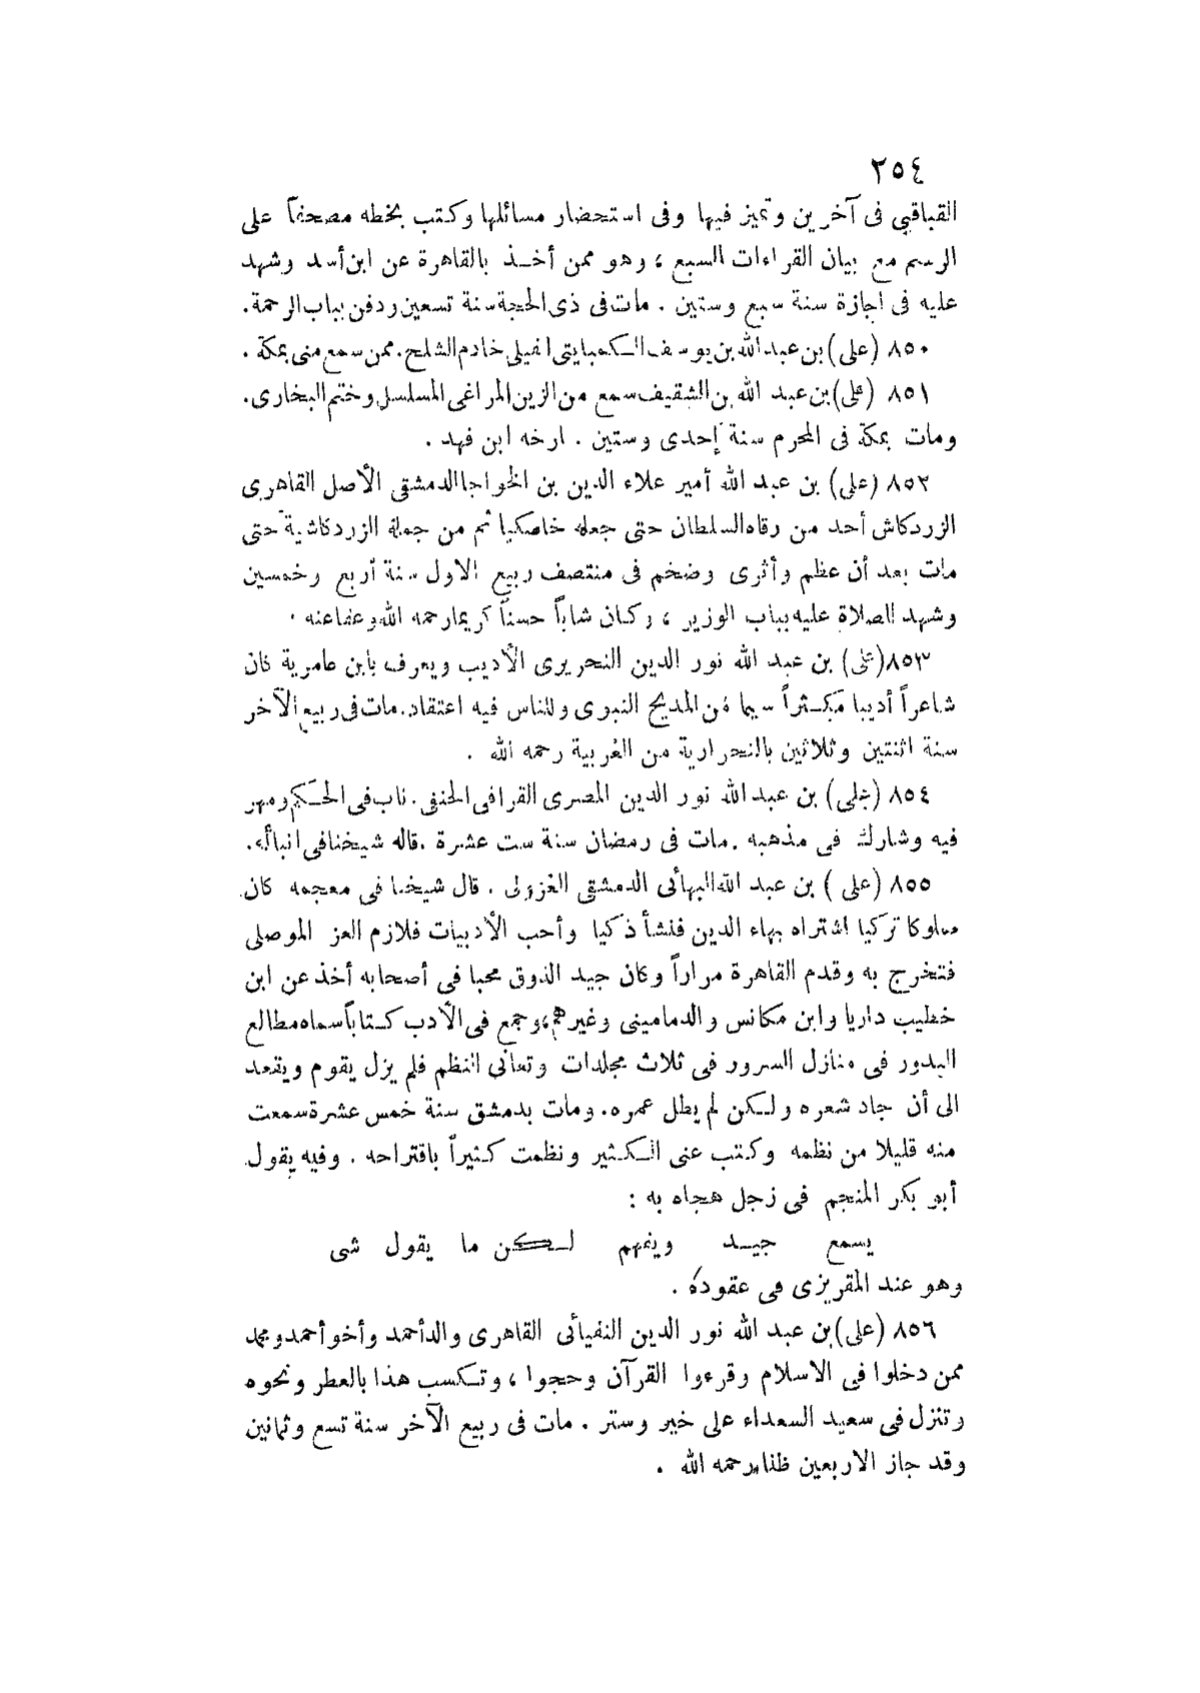 ٢٥٤
القباقبي فى آخرين وتميز فيها وفى استحضار مسائلها وكتب بخطه مصحفاً على
الرسم مع بيان القراءات السبع ، وهو ممن أخذ بالقاهرة عن ابن أسد وشهد
عليه فى اجازة سنة سبع وستين . مات فى ذى الحجة سنة تسعين ودفن بباب الرحمة .
٨٥٠ (على) بن عبد الله بن يوسف الكمبايتى الفيلى خادم الشلح . ممن سمع منى بمكة .
٨٥١ (على) بن عبد الله بن الشقيف سمع من الزين المراغى المسلسل وختم البخارى .
ومات بمكة فى المحرم سنة إحدى وستين . ارخه ابن فهد .
٨٥٢ (على) بن عبد الله أمير علاء الدين بن الخواجا الدمشقى الأصل القاهرى
الزردكاش أحد من رقاه السلطان حتى جعله خاصكيا ثم من جملة الزردكاشية حتى
مات بعد أن عظم وأثرى وضخم فى منتصف ربيع الاول سنة أربع وخمسين
وشهد الصلاة عليه بباب الوزير ، وكان شاباً حسناً كريما رحمه الله وعفا عنه .
٨٥٣ (على) بن عبد الله نور الدين النحريرى الأديب ويعرف بابن عامرية كان
شاعراً أديبا مكثراً سيما من المديح النبوى وللناس فيه اعتقاد . مات فى ربيع الآخر
سنة اثنتين وثلاثين بالنحرارية من الغربية رحمه الله .
٨٥٤ (على) بن عبد الله نور الدين المصرى القرافى الحنفى . ناب فى الحكم ومهر
فيه وشارك فى مذهبه . مات فى رمضان سنة ست عشرة . قاله شيخنا فى انبائه .
٨٥٥ (على) بن عبد الله البهائى الدمشقى الغزولى . قال شيخنا فى معجمه كان
مملوكا تركيا اشتراه بهاء الدين فنشأ ذكيا وأحب الأدبيات فلازم العز الموصلى
فتخرج به وقدم القاهرة مراراً وكان جيد الذوق محبا فى أصحابه أخذ عن ابن
خطيب داريا وابن مكانس والدمامينى وغيرهم ، وجمع فى الأدب كتاباً سماه مطالع
البدور فى منازل السرور فى ثلاث مجلدات وتعانى النظم فلم يزل يقوم ويقعد
الى أن جاد شعره ولكن لم يطل عمره . ومات بدمشق سنة خمس عشرة سمعت
منه قليلا من نظمه وكتب عنى الكثير ونظمت كثيراً باقتراحه . وفيه يقول
أبو بكر المنجم فى زجل هجاه به :
يسمع جيد ويفهم لكن ما يقول شى
وهو عند المقريزى فى عقوده .
٨٥٦ (على) بن عبد الله نور الدين النفيائى القاهرى والد أحمد وأخو أحمد ومحمد
ممن دخلوا فى الاسلام وقرءوا القرآن وحجوا ، وتكسب هذا بالعطر ونحوه
وتنزل فى سعيد السعداء على خير وستر . مات فى ربيع الآخر سنة تسع وثمانين
وقد جاز الاربعين ظنا رحمه الله .